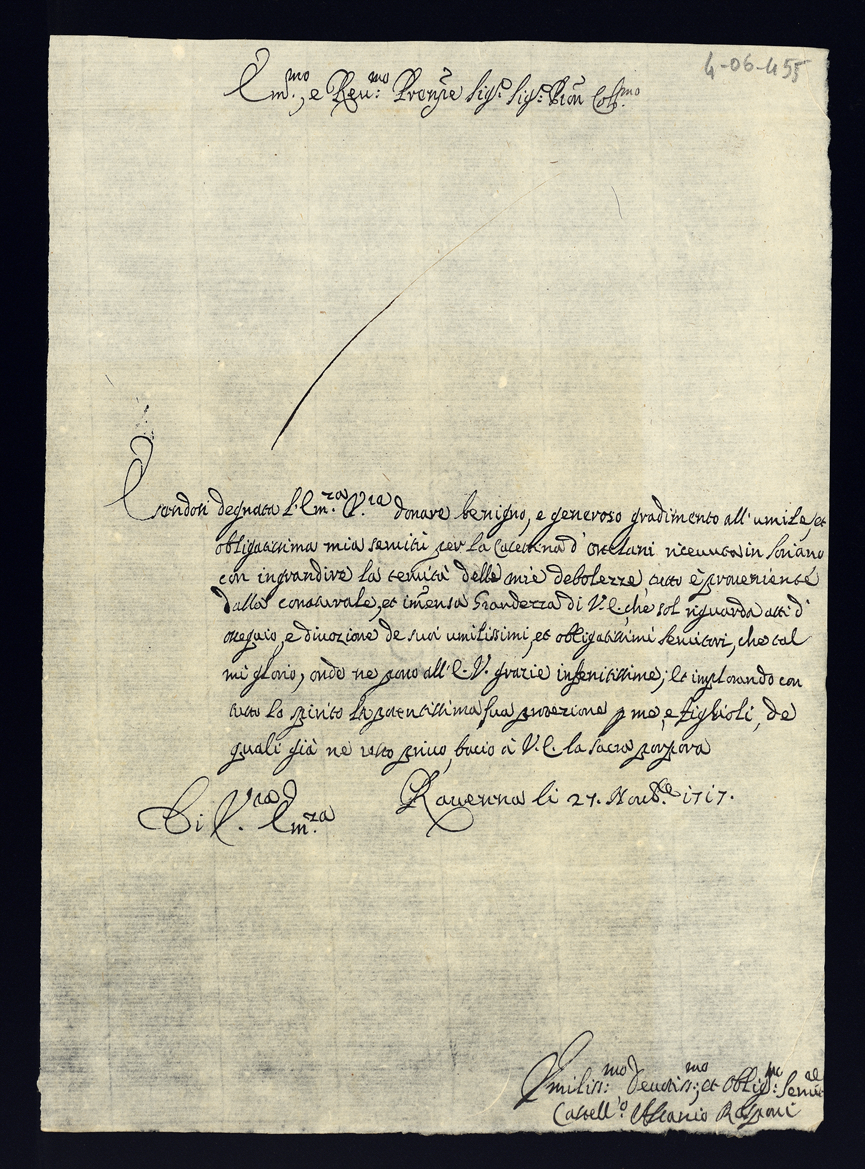 4-06-455
Em.mo, e Reu.mo Pronpe Sig.r Sig.r Pron Col.mo
Esendosi degnata l'Em.za V.ra donare benigno, e generoso gradimento all'umile, et
obligatissima mia seruitù per la Cassettina d'ortolani riceuuta in Soriano
con ingrandire la tenuità delle mie debolezze, tutto è proueniente
dalla connaturale, et imensa Grandezza di V.E., che sol riguarda atti d'
ossequio, e diuozione de suoi umilissimi, et obligatissimi seruitori, che tal
mi glorio, onde ne porto all'E.V. grazie infenitissime; et implorando con
tutto lo spirito la potentissima sua protezione p me, e figlioli, de
quali già ne resto priuo, bacio à V.E. la sacra porpora
Di V.ra Em.za Rauenna li 27. Nou.bre 1717.
Vmiliss.mo Deuotiss.mo, et Oblig.mo Seruit
Castell.o Ascanio Rasponi